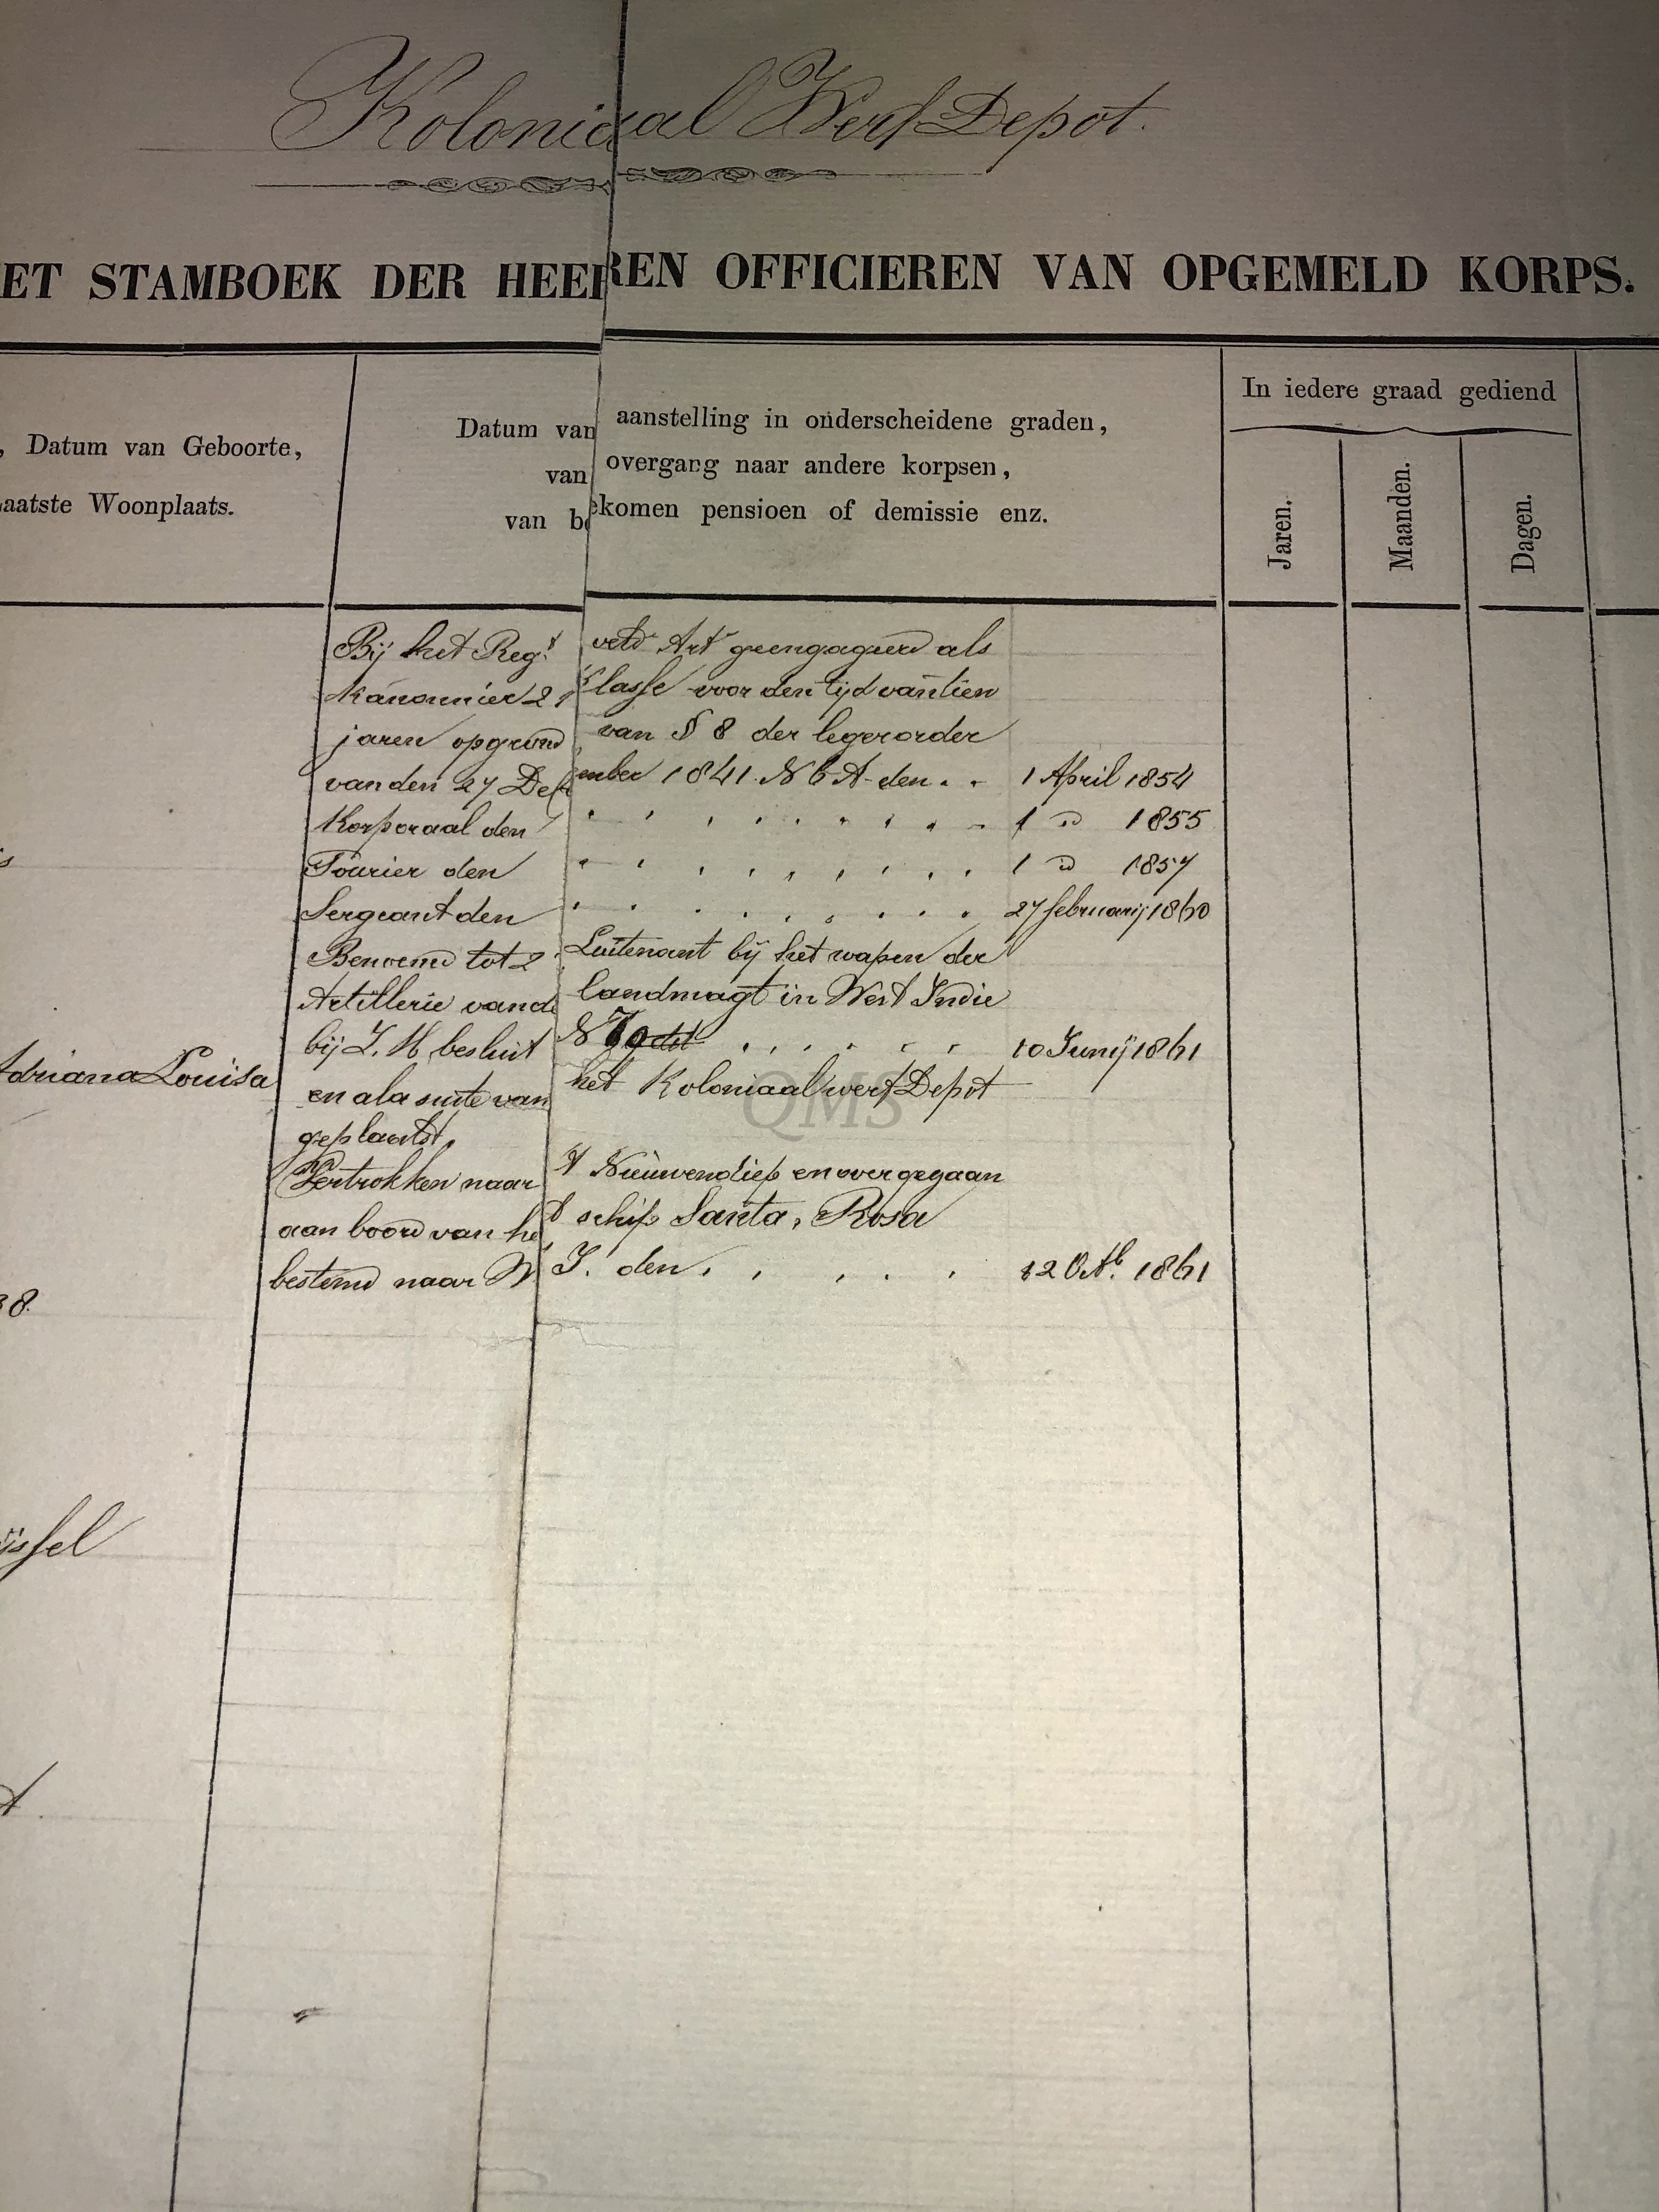 Koloniaal Werf Depot.
ET STAMBOEK DER HEEREN OFFICIEREN VAN OPGEMELD KORPS.
, Datum van Geboorte,
aatste Woonplaats.
Datum van aanstelling in onderscheidene graden,
van overgang naar andere korpsen,
van bekomen pensioen of demissie enz.
In iedere graad gediend
Jaren.
Maanden.
Dagen.
Bij het Regt veld Art geengageerd als
Kanonnier 2e klasse voor den tijd van tien
jaren op grond van § 8 der legerorder
van den 27 December 1841 N 6 A den 1 April 1854
Korporaal den 1 " 1855
Fourier den 1 " 1857
Sergeant den 27 februarij 1860
Benoemd tot 2 Luitenant bij het wapen der
Artillerie van de landmagt in West Indie
bij Z. M. besluit N 70 10 Junij 1861
Adriana Louisa
en ala suite van het Koloniaal werf Depot
geplaatst.
Vertrokken naar 't Nieuwendiep en overgegaan
aan boord van het schip Santa, Rosa
bestemd naar W. I. den 12 Octb. 1861
38.
ijssel